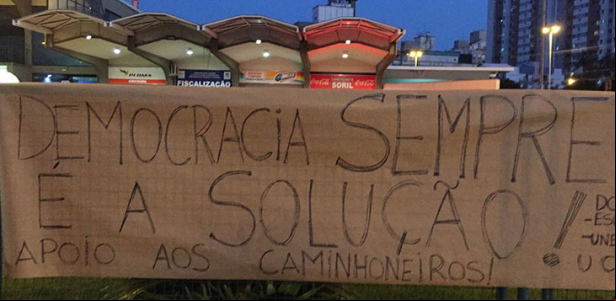 PLUMA
FISCALIZAÇÃO
Coca-Cola
SORIL
Coca-Cola
DEMOCRACIA SEMPRE
É A SOLUÇÃO!
APOIO AOS CAMINHONEIROS!
DO
-ES
-UNE
UC